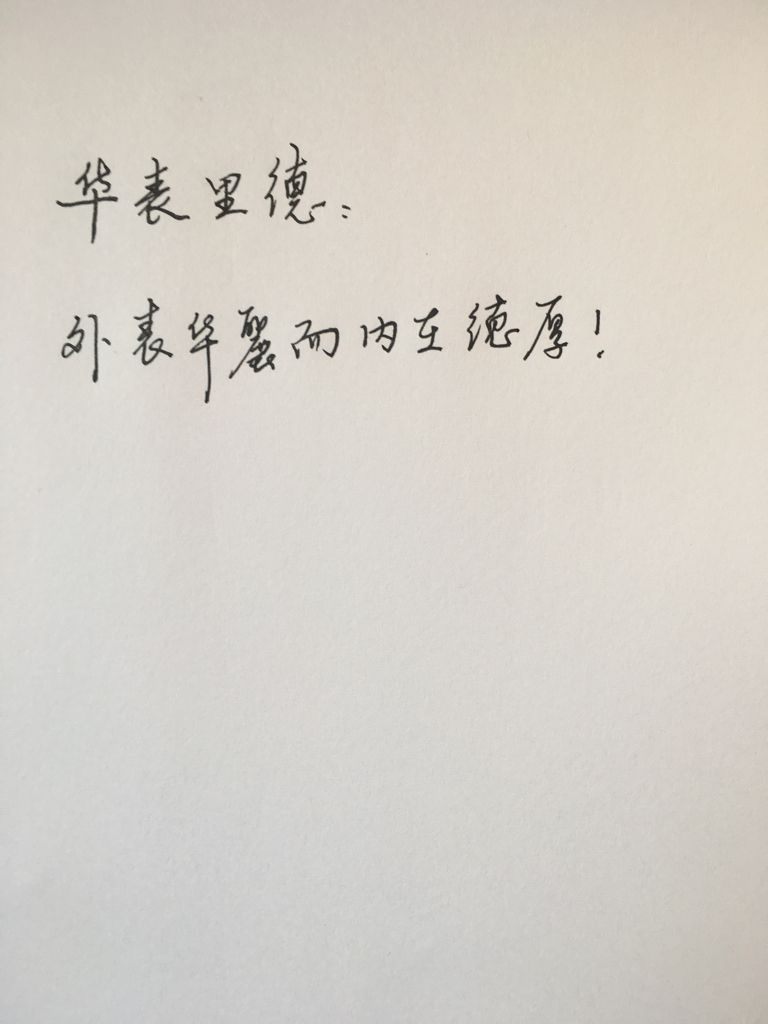 华表里德：
外表华丽而内在德厚！